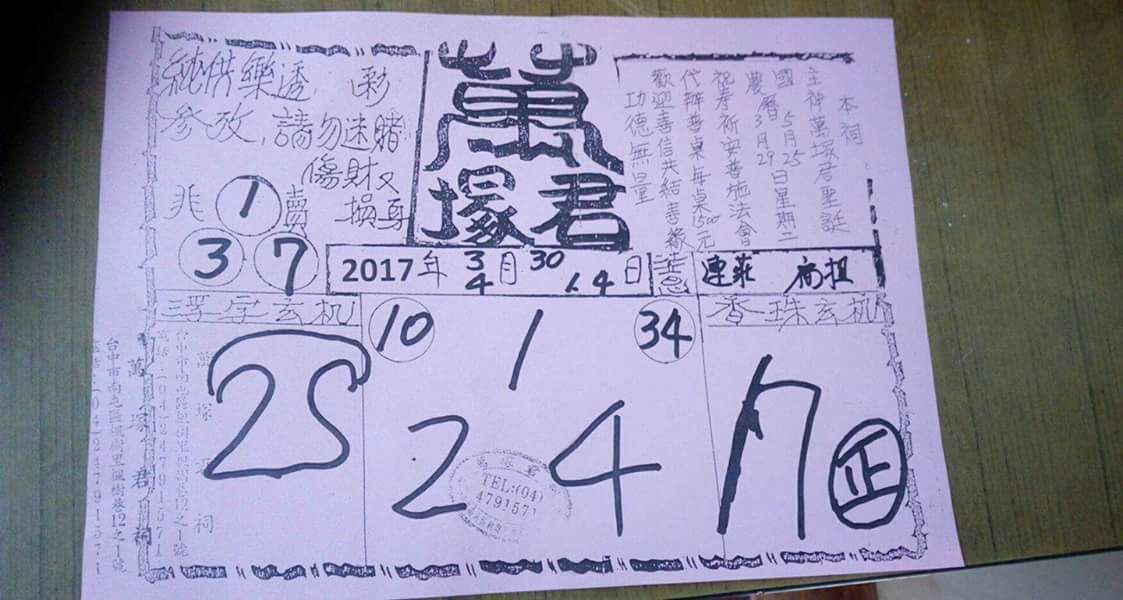 純供樂透,彩
參攷,請勿迷賭
傷財又
損身
非 1 賣
3 7
萬
塚君
本祠
主神萬塚君聖誕
國5月25日星期二
農曆3月29日
祝奉祈安普施法會
代辦普桌每桌1500元
歡迎善信共結善緣
功德無量
2017年 3/4月 30 1.4日
連莊
字玄机
10 1 34
香珠玄机
2
2 4
正
TEL:(04)
4791571
萬塚君祠
台中市南屯區楓樹里楓樹巷12之1號
萬塚君祠